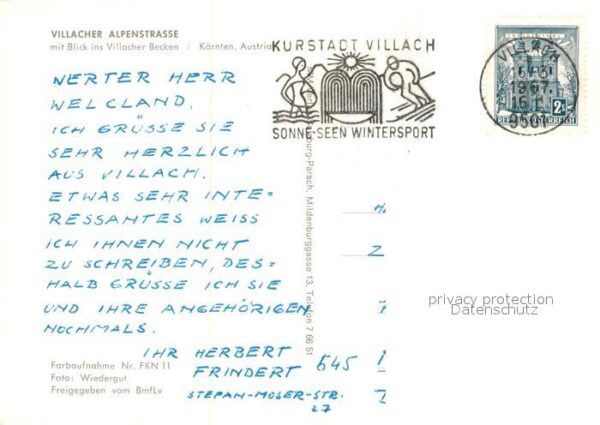 VILLACHER ALPENSTRASSE
mit Blick ins Villacher Becken / Kärnten, Austria
WERTER HERR
WELCLAND,
ICH GRÜSSE SIE
SEHR HERZLICH
AUS VILLACH.
ETWAS SEHR INTE-
RESSANTES WEISS
ICH IHNEN NICHT
ZU SCHREIBEN, DES-
HALB GRÜSSE ICH SIE
UND IHRE ANGEHÖRIGEN
NOCHMALS.
IHR HERBERT
FRINDERT
STEPAN-MOSER-STR.
27
Farbaufnahme Nr. FKN 11
Foto: Wiedergut
Freigegeben vom BmfLv
burg-Parsch, Mildenburggasse 13, Telefon 7 66 51
KURSTADT VILLACH
SONNE-SEEN WINTERSPORT
VILLACH
1967
9501
2
REPUBLIK ÖSTERREICH
H.
Z
545
privacy protection
Datenschutz